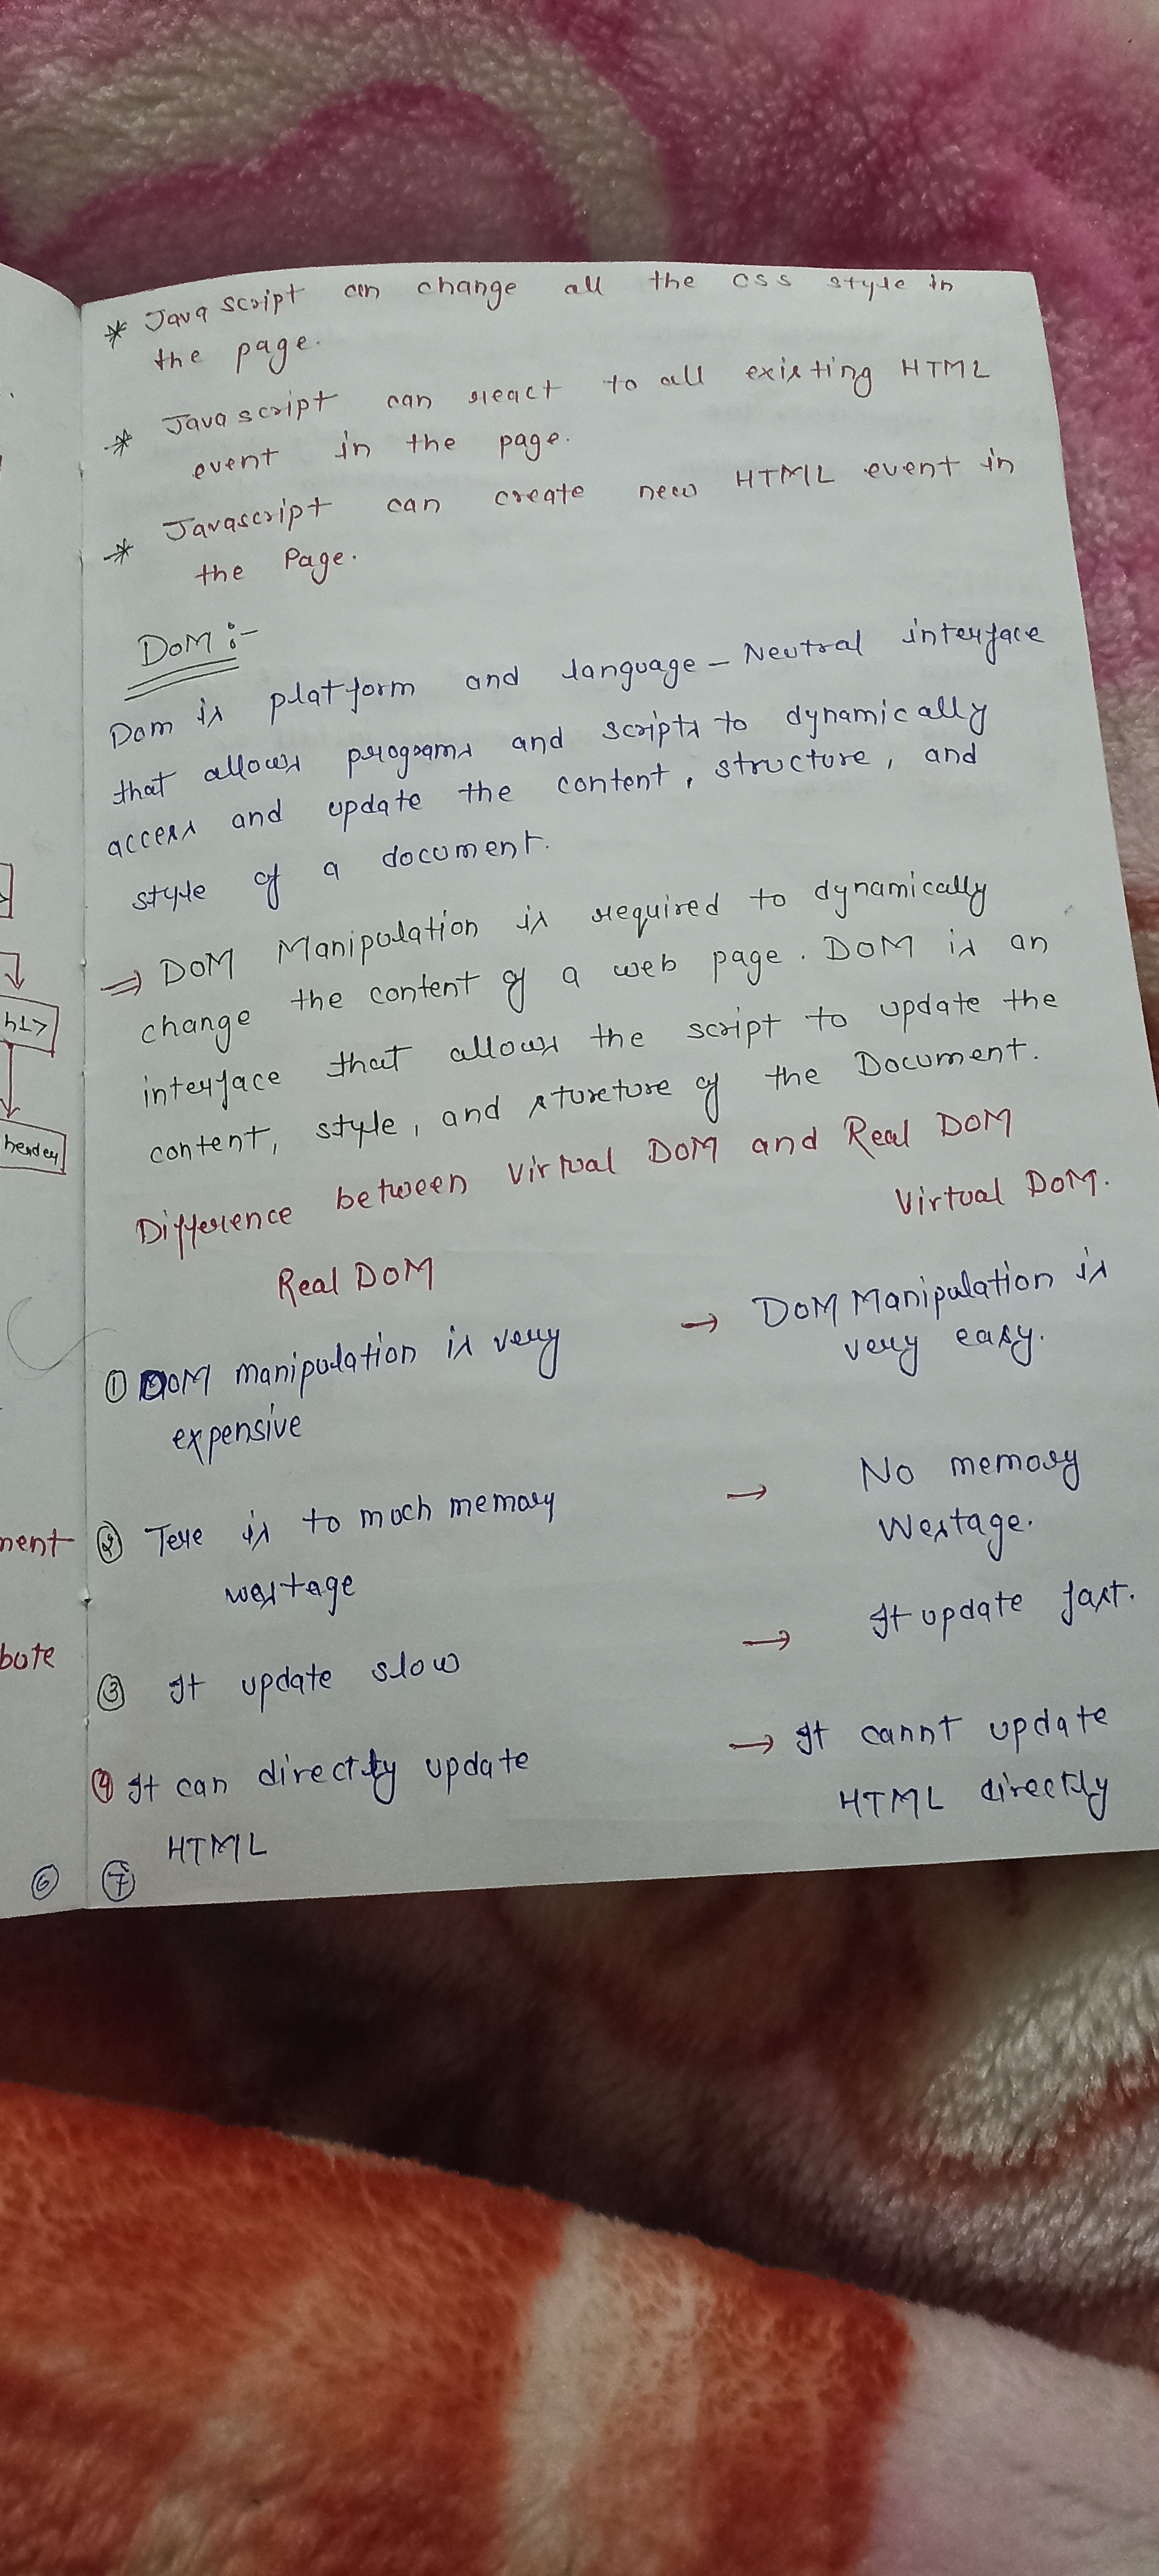 * Java script can change all the css style in
the page.
* Java script can react to all existing HTML
event in the page.
* Javascript can create new HTML event in
the Page.
DOM :-
Dom is platform and language - Neutral interface
that allows programs and scripts to dynamically
access and update the content, structure, and
style of a document.
⇒ DOM Manipulation is required to dynamically
change the content of a web page. DOM is an
interface that allows the script to update the
content, style, and sturcture of the Document.
Difference between Virtual DOM and Real DOM
Real DOM Virtual DOM.
① DOM manipulation is very → DOM Manipulation is
expensive very easy.
② Tere is to much memory → No memory
westage Westage.
③ It update slow → It update fast.
④ It can directly update → It cannt update
HTML HTML directly
⑥ ⑦
h1>
header
ment
bute